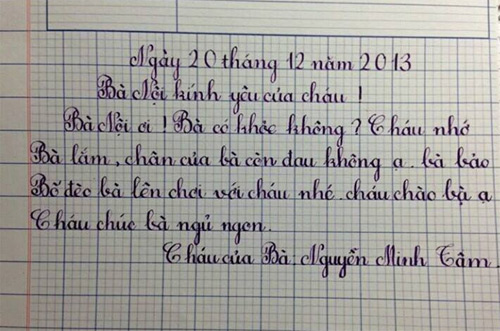 Ngày 20 tháng 12 năm 2013
Bà Nội kính yêu của cháu !
Bà Nội ơi ! Bà có khỏe không ? Cháu nhớ
Bà lắm, chân của bà còn đau không ạ. bà bảo
Bố đèo bà lên chơi với cháu nhé. cháu chào bà ạ
Cháu chúc bà ngủ ngon.
Cháu của Bà. Nguyễn Minh Tâm.